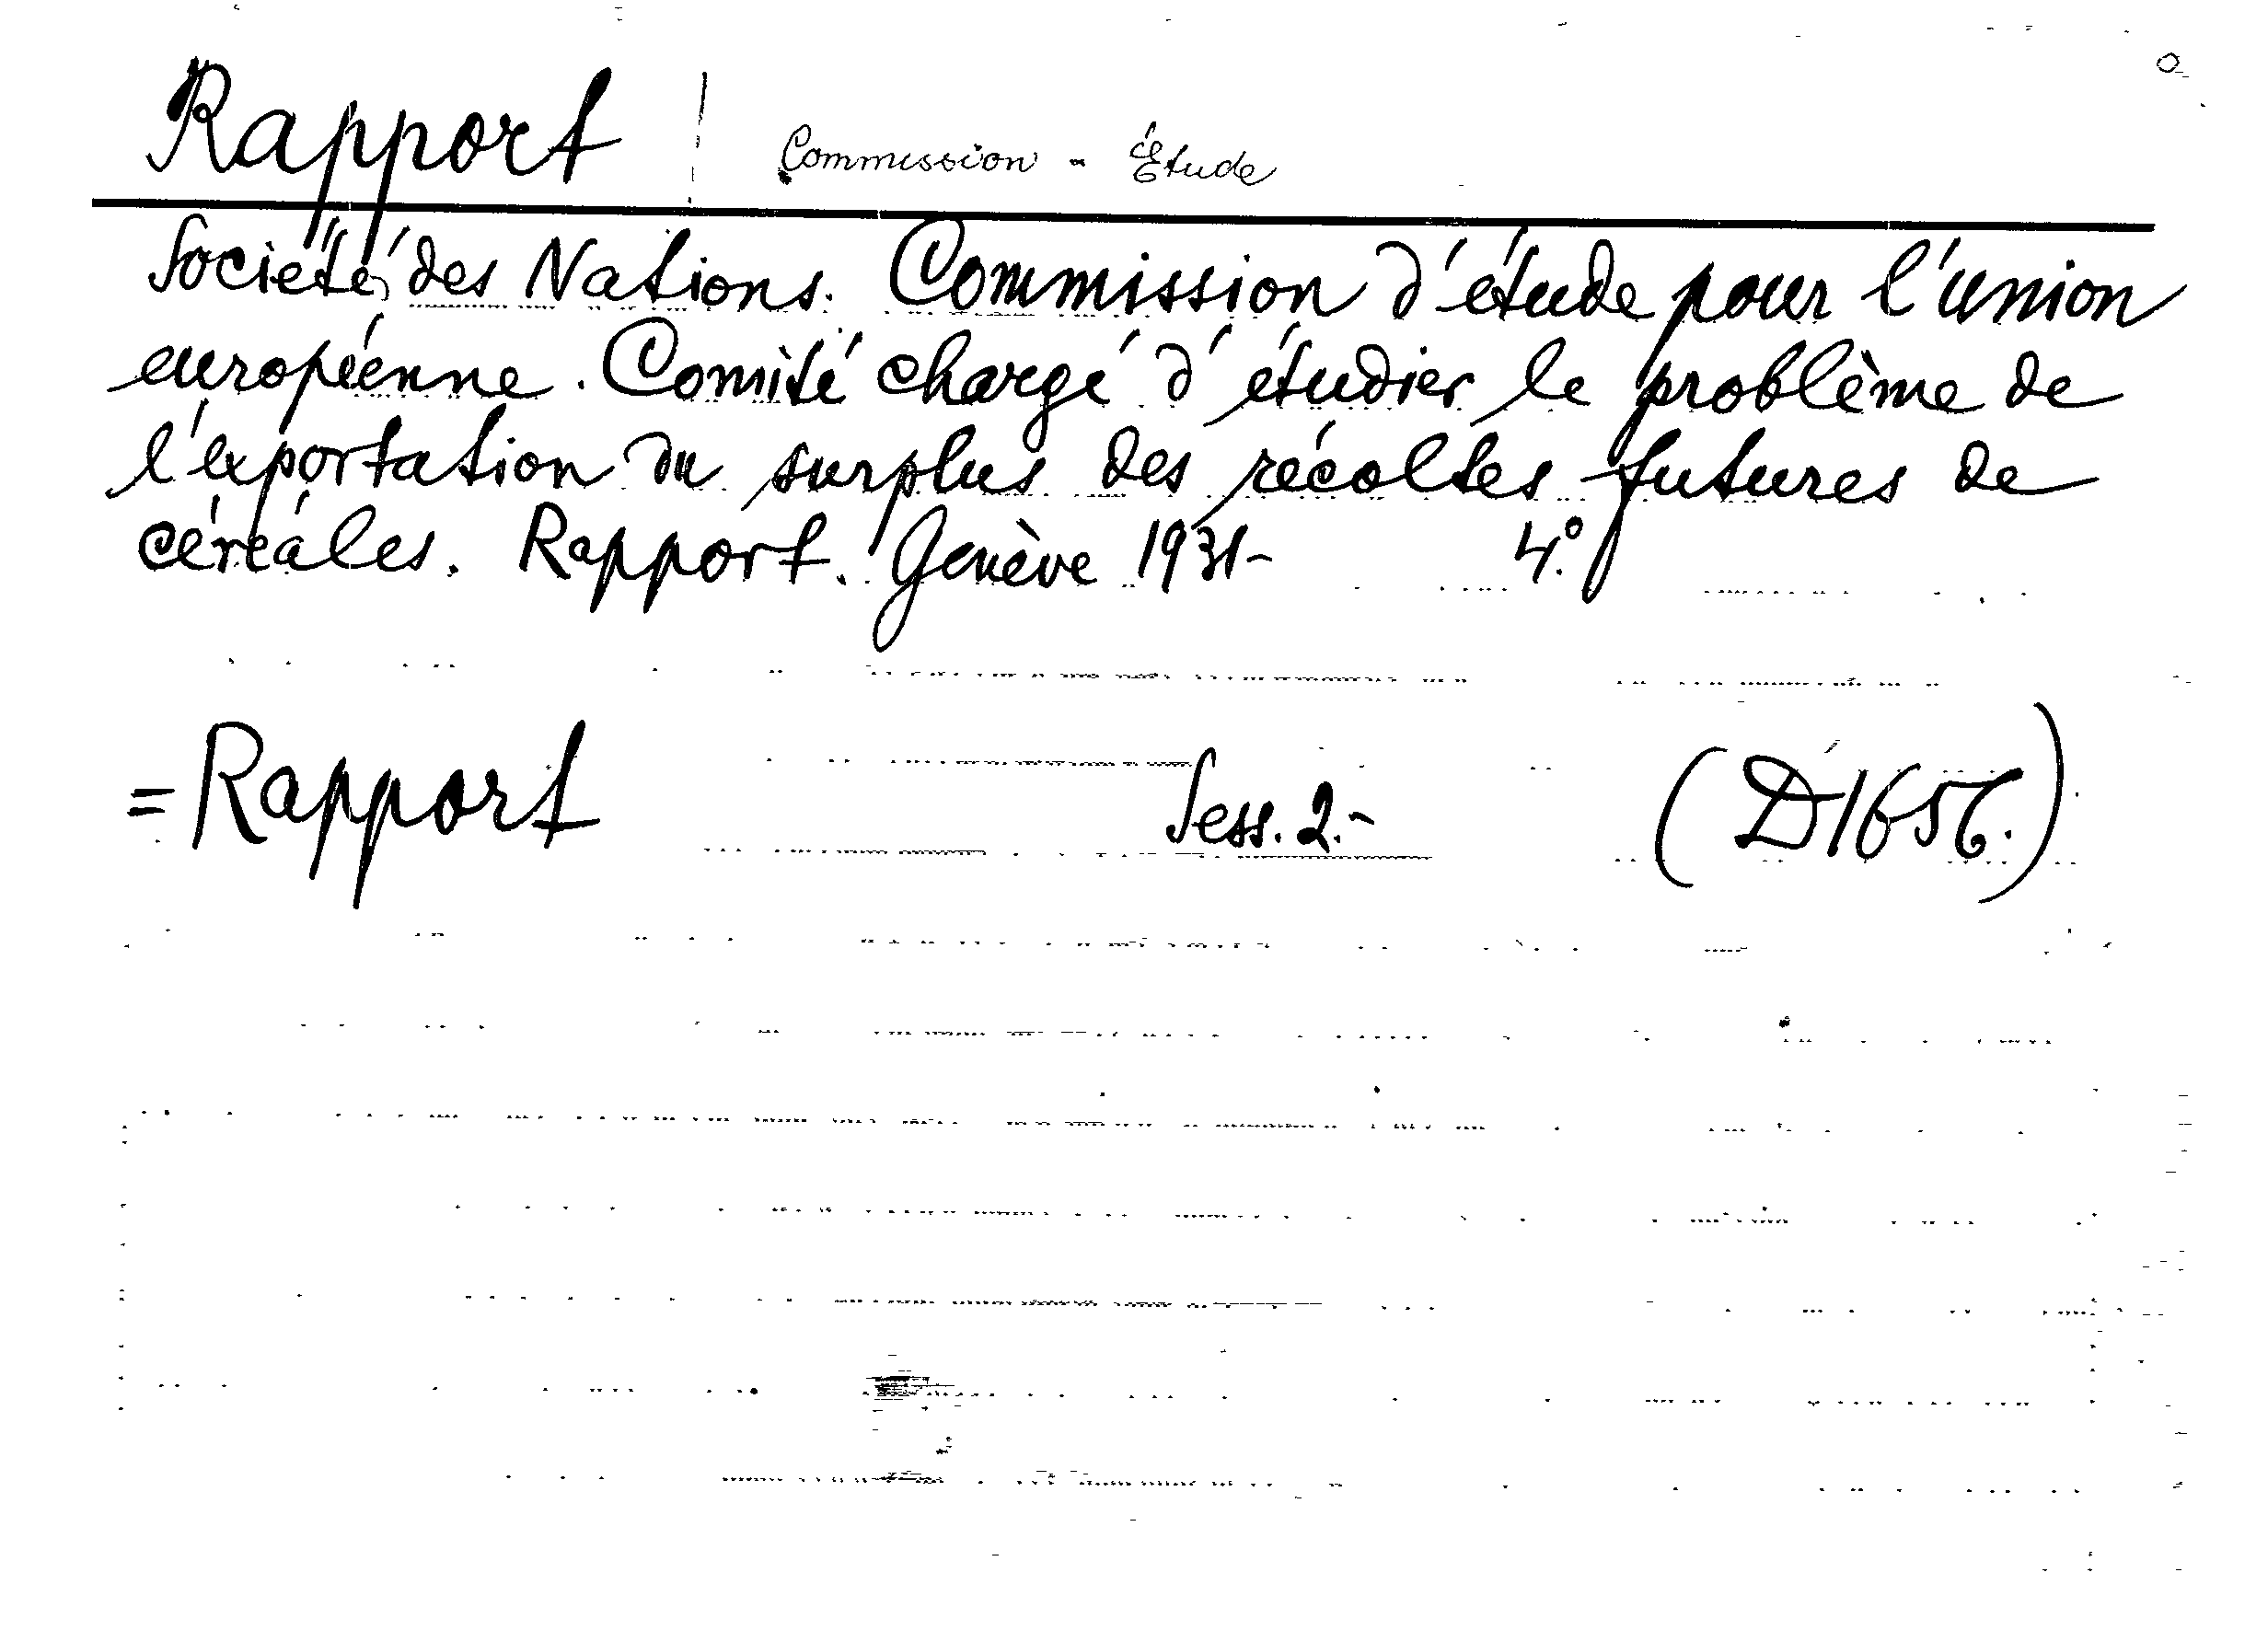 Rapport | Commission - Étude
Société des Nations. Commission d'étude pour l'union
européenne. Comité chargé d'étudier le problème de
l'exportation du surplus des récoltes futures de
céréales. Rapport. Genève 1931- 4.°
= Rapport Sess. 2.- (D1656.)